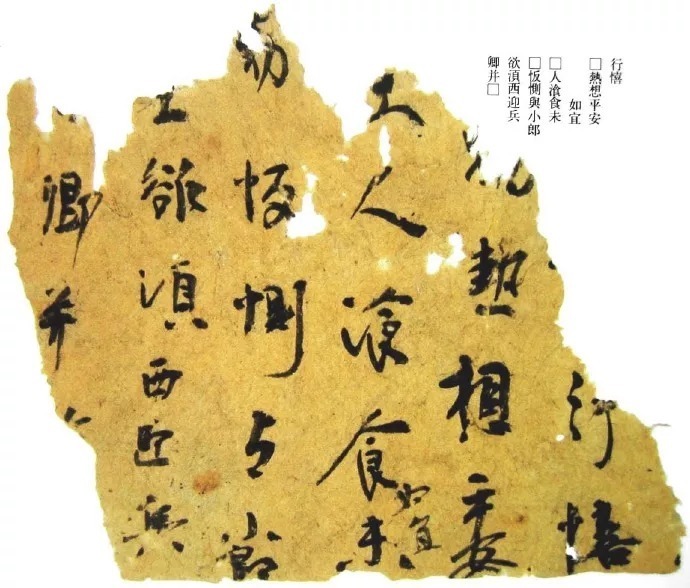 行憘
□熱想平安
如宜
□人湌食未
□惻與小郎
欲湏西迎兵
卿并□
行憘
熱相平安
人湌食未
如宜
惻与小郎
欲湏西迎兵
卿并